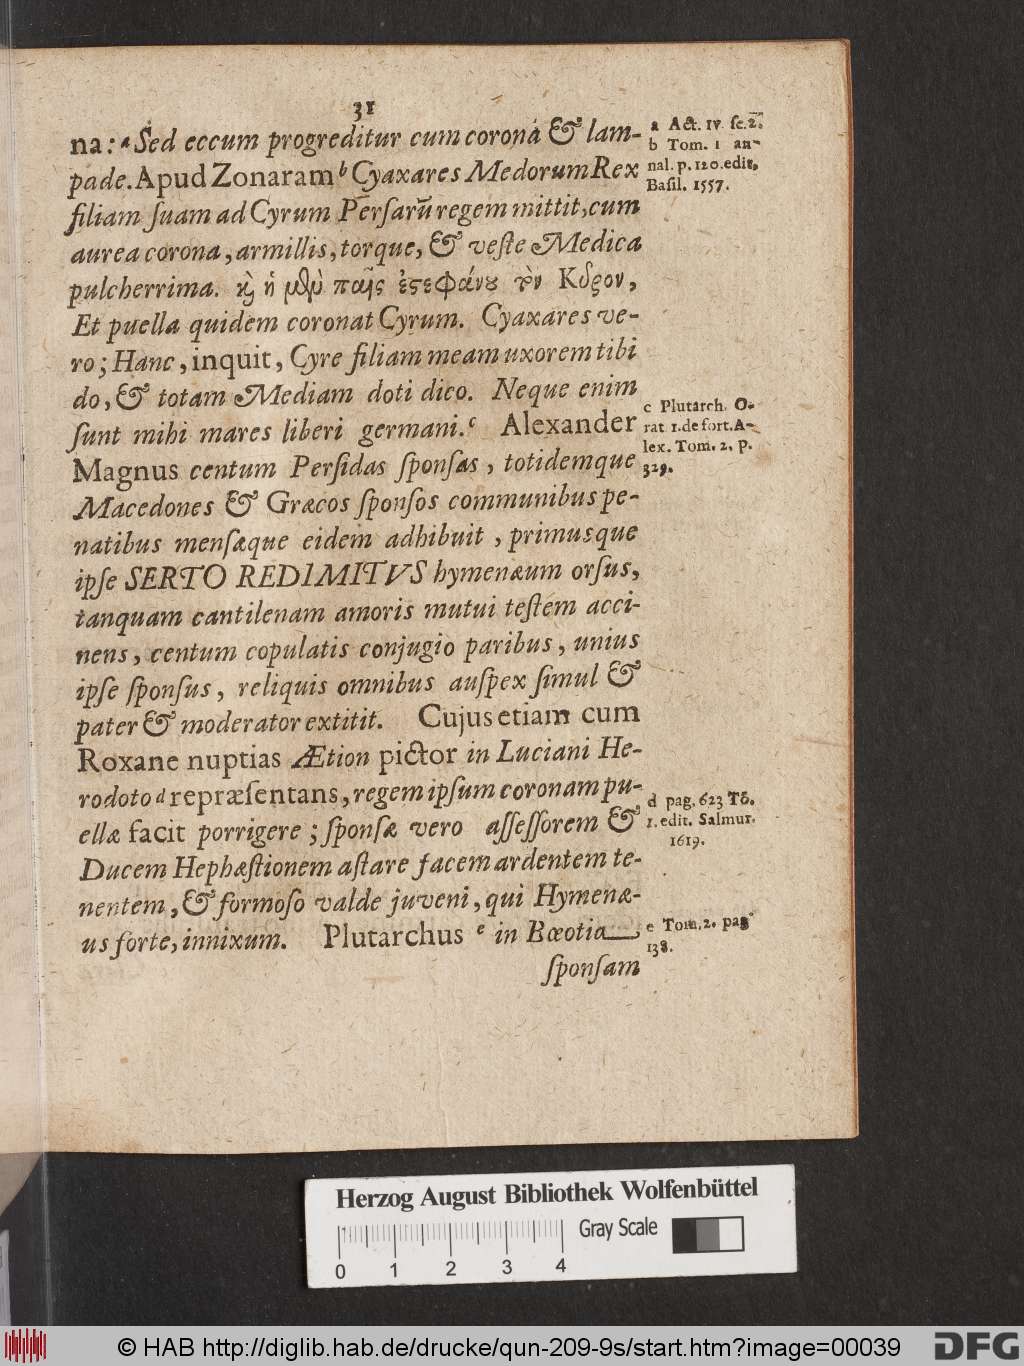 31
na: a Sed eccum progreditur cum coronâ & lam-
pade. Apud Zonaram b Cyaxares Medorum Rex
filiam ſuam ad Cyrum Perſarū regem mittit, cum
aurea corona, armillis, torque, & veſte Medica
pulcherrima. ϗ̀ ἡ μὲν παῖς ἐϛεφάνου τὸν Κῦρον,
Et puella quidem coronat Cyrum. Cyaxares ve-
ro; Hanc, inquit, Cyre filiam meam uxorem tibi
do, & totam Mediam doti dico. Neque enim
ſunt mihi mares liberi germani. c Alexander
Magnus centum Perſidas ſponſas, totidemque
Macedones & Græcos ſponſos communibus pe-
natibus menſæque eidem adhibuit, primusque
ipſe SERTO REDIMITVS hymenæum orſus,
tanquam cantilenam amoris mutui teſtem acci-
nens, centum copulatis conjugio paribus, unius
ipſe ſponſus, reliquis omnibus auſpex ſimul &
pater & moderator extitit. Cujus etiam cum
Roxane nuptias Ætion pictor in Luciani He-
rodoto d repræſentans, regem ipſum coronam pu-
ellæ facit porrigere; ſponſæ vero aſſeſſorem &
Ducem Hephæſtionem aſtare facem ardentem te-
nentem, & formoſo valde juveni, qui Hymenæ-
us forte, innixum. Plutarchus e in Bœotia
ſponſam
a Act. IV. ſc. 2.
b Tom. 1 an-
nal. p. 120. edit.
Baſil. 1557.
c Plutarch. O-
rat 1. de fort. A-
lex. Tom. 2. p.
329.
d pag. 623 Tō.
1. edit. Salmur.
1619.
e Tom. 2. pag
138.
Herzog August Bibliothek Wolfenbüttel
Gray Scale
0 1 2 3 4
© HAB http://diglib.hab.de/drucke/qun-209-9s/start.htm?image=00039
DFG